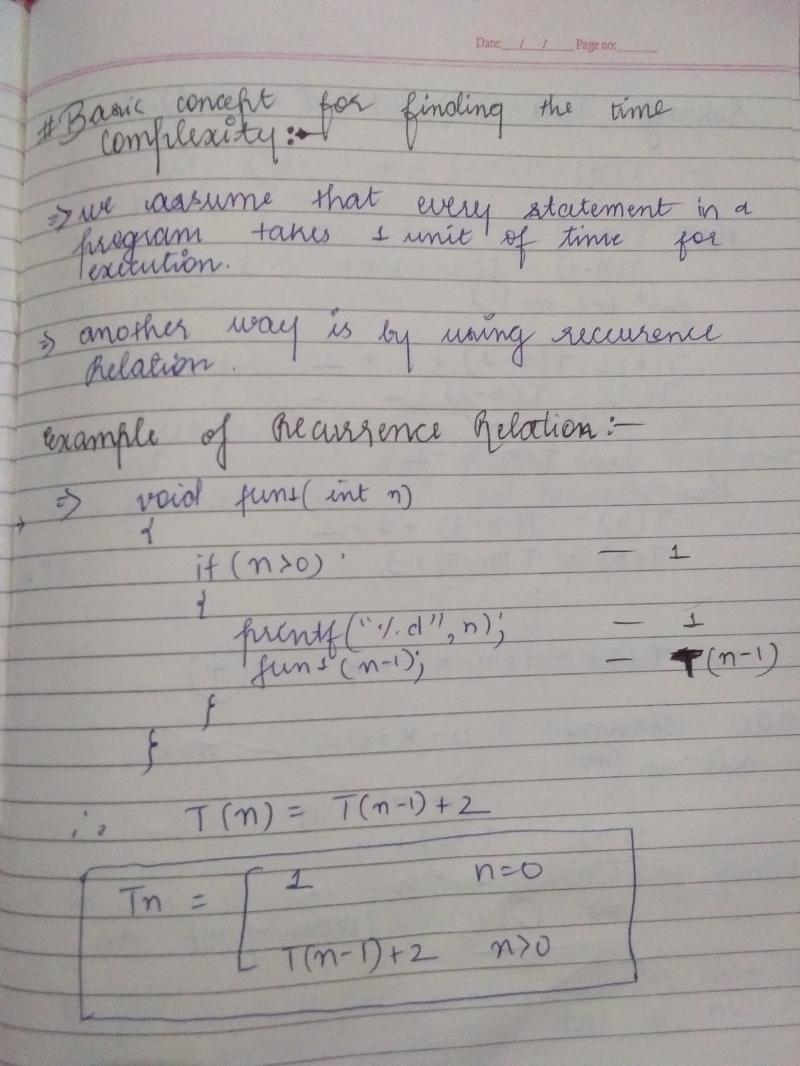 Date: / / Page no:
# Basic concept for finding the time
complexity :-
⇒ we assume that every statement in a
program takes 1 unit of time for
execution.
⇒ another way is by using reccurence
Relation.
example of Recurrence Relation :-
⇒ void fun1( int n)
{
if (n>0) — 1
{
printf("%d", n); — 1
fun1 (n-1); — T(n-1)
}
}
∴ T(n) = T(n-1)+2
1 n=0
Tn =
T(n-1)+2 n>0